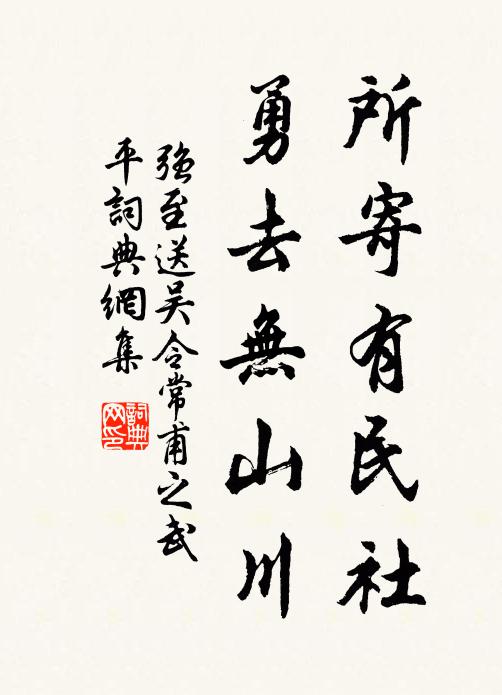 所寄有民社
勇去無山川
強至送吴令常甫之武
平詞典網集
詞典
网印